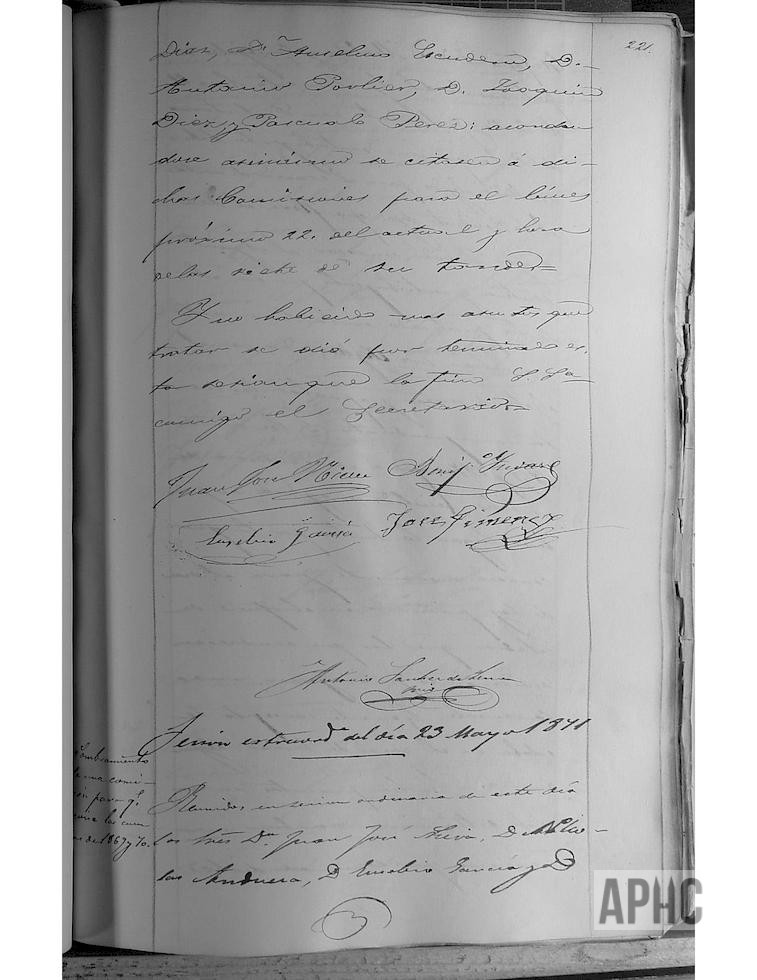 221.
Diaz, Dn Anselmo Escudero, D.
Antonio Porlier, D. Joaquin
Diez, y Pascual Perez: acordan-
dose asimismo se citasen á di-
chas Comisiones para el lúnes
próximo 22. del actual y hora
de las siete de su tarde=
Y no habiendo mas asuntos que
tratar se dió por terminada es-
ta sesion que la firma S. Sa
conmigo el Secretario=
Juan José
Eusebio García José Gimenez
Antonio Sanchez de
Sesión extraord.a del día 23 Mayo 1871
Nombramiento
de una comi-
sion para q.e
las cuen-
tas del 1869 y 70.
Reunidos en sesion ordinaria de este día
los Sres Dn Juan José D Nico-
las Anduera, D Eusebio García y D
APHC